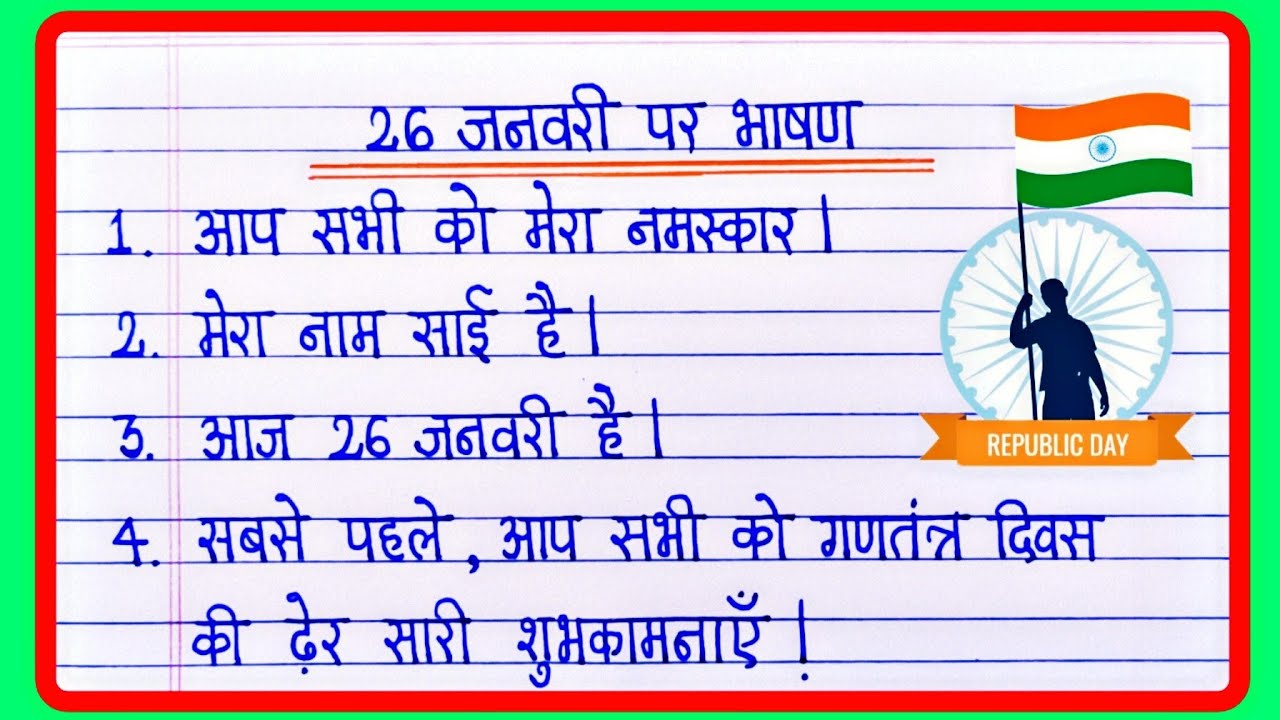 26 जनवरी पर भाषण
1. आप सभी को मेरा नमस्कार।
2. मेरा नाम साई है।
3. आज 26 जनवरी है।
REPUBLIC DAY
4. सबसे पहले, आप सभी को गणतंत्र दिवस
की ढ़ेर सारी शुभकामनाएँ!